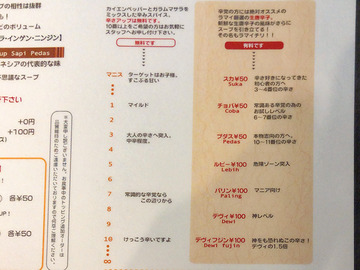 の相性は抜群
とのボリューム
ラ・インゲン・ニンジン】
up Sapi Pedas
ネシアの代表的な味
不思議なスープ
下さい
+0円
+100円
各¥50
UP!
各¥50
カイエンペッパーとカラムマサラを
ミックスした辛みスパイス。
辛さアップは無料です。
10番以上をご希望の方はお気軽に
スタッフへお申し付け下さい。
無料です
マニス ターゲットはお子様、
すこぶる甘い
1 マイルド
2
3 大人の辛さへ突入、
中辛程度
4
5
6
7 常識的な辛党なら
この辺りから
8
9
10 けっこう辛いですよ
∞
辛党の方には絶対オススメの
ラマイ厳選の生唐辛子。
新鮮な生唐辛子の風味がさらに
スープを引き立てる!
その名もラマイチリ!!
有料です
スカ¥50 辛さ好きになってきた
Suka 初心者の方へ
3〜4番位の辛さ
チョバ¥50 常識ある辛党の為の
Coba お試しレベル
6〜7番位の辛さ
プダス¥50 本物志向の方へ、
Pedas 10〜11番位の辛さ
ルビー¥100 危険ゾーン突入
Lebih
パリン¥100 マニア向け
Paling
デヴィ¥100 神レベル
Dewi
デヴィフジン¥100 神をも恐れぬこの辛さ!
Dewi Fujin デヴィの1.5倍